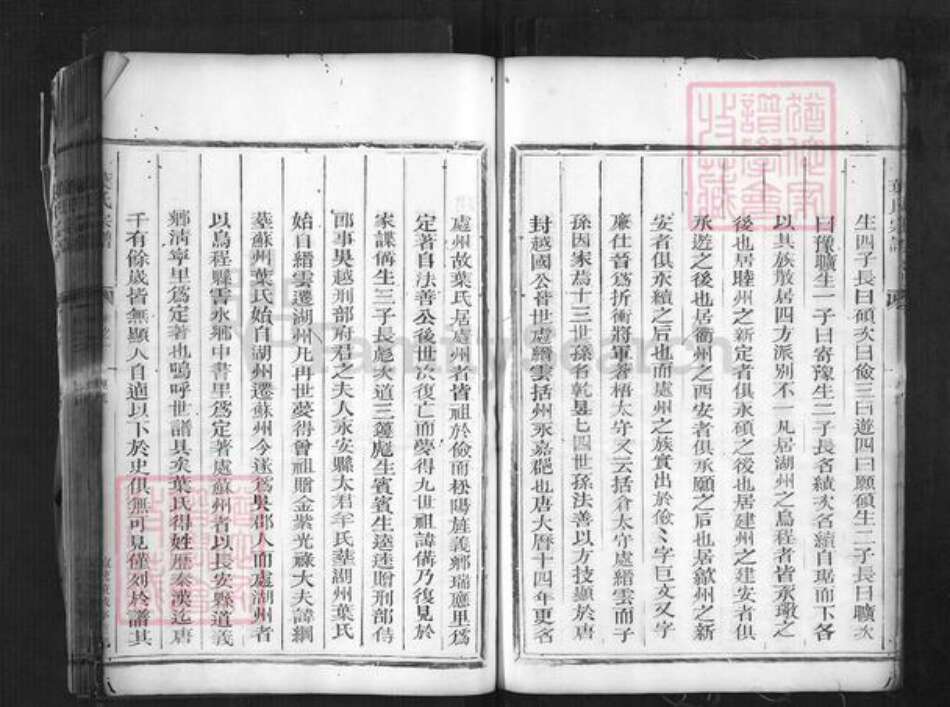 生四子長曰碩次曰儉三曰遊四曰願碩生二子長曰曠次
曰豫曠生一子曰寄豫生二子長名績次名續自琚而下各
以其族散居四方派別不一凡居湖州之烏程者皆永璥之
後也居睦州之新定者俱永碩之後也居建州之建安者俱
承遊之後也居衢州之西安者俱承願之后也居歙州之新
安者俱永續之后也而處州之族實出於儉儉字巨文又字
廉仕晉爲折衝將軍蒼梧太守又云括倉太守處縉雲而子
孫因家焉十三世孫名乾昱七四世孫法善以方技顯於唐
封越國公晉世處縉雲括州永嘉郡也唐大曆十四年更名
處州故葉氏居處州者皆祖於儉而松陽旌義鄉瑞應里爲
定著自法善公後世次復亡而夢得九世祖諱儔乃復見於
家諜儔生三子長彪次道三蘧彪生賓賓生逵逵贈刑部侍
郎事吳越刑部府君之夫人永安縣太君羊氏塟湖州葉氏
始自縉雲遷湖州凡再世夢得曾祖贈金紫光祿大夫諱綱
塟蘇州葉氏始自湖州遷蘇州今遂爲吳郡人而處湖州者
以烏程縣霅水鄉中書里爲定著處蘇州者以長安縣道義
鄉淸寧里爲定著也嗚呼世譜具矣葉氏得姓歷秦漢迄唐
千有餘歲皆無顯人自適以下於史俱無可見僅列於譜其
葉氏宗譜